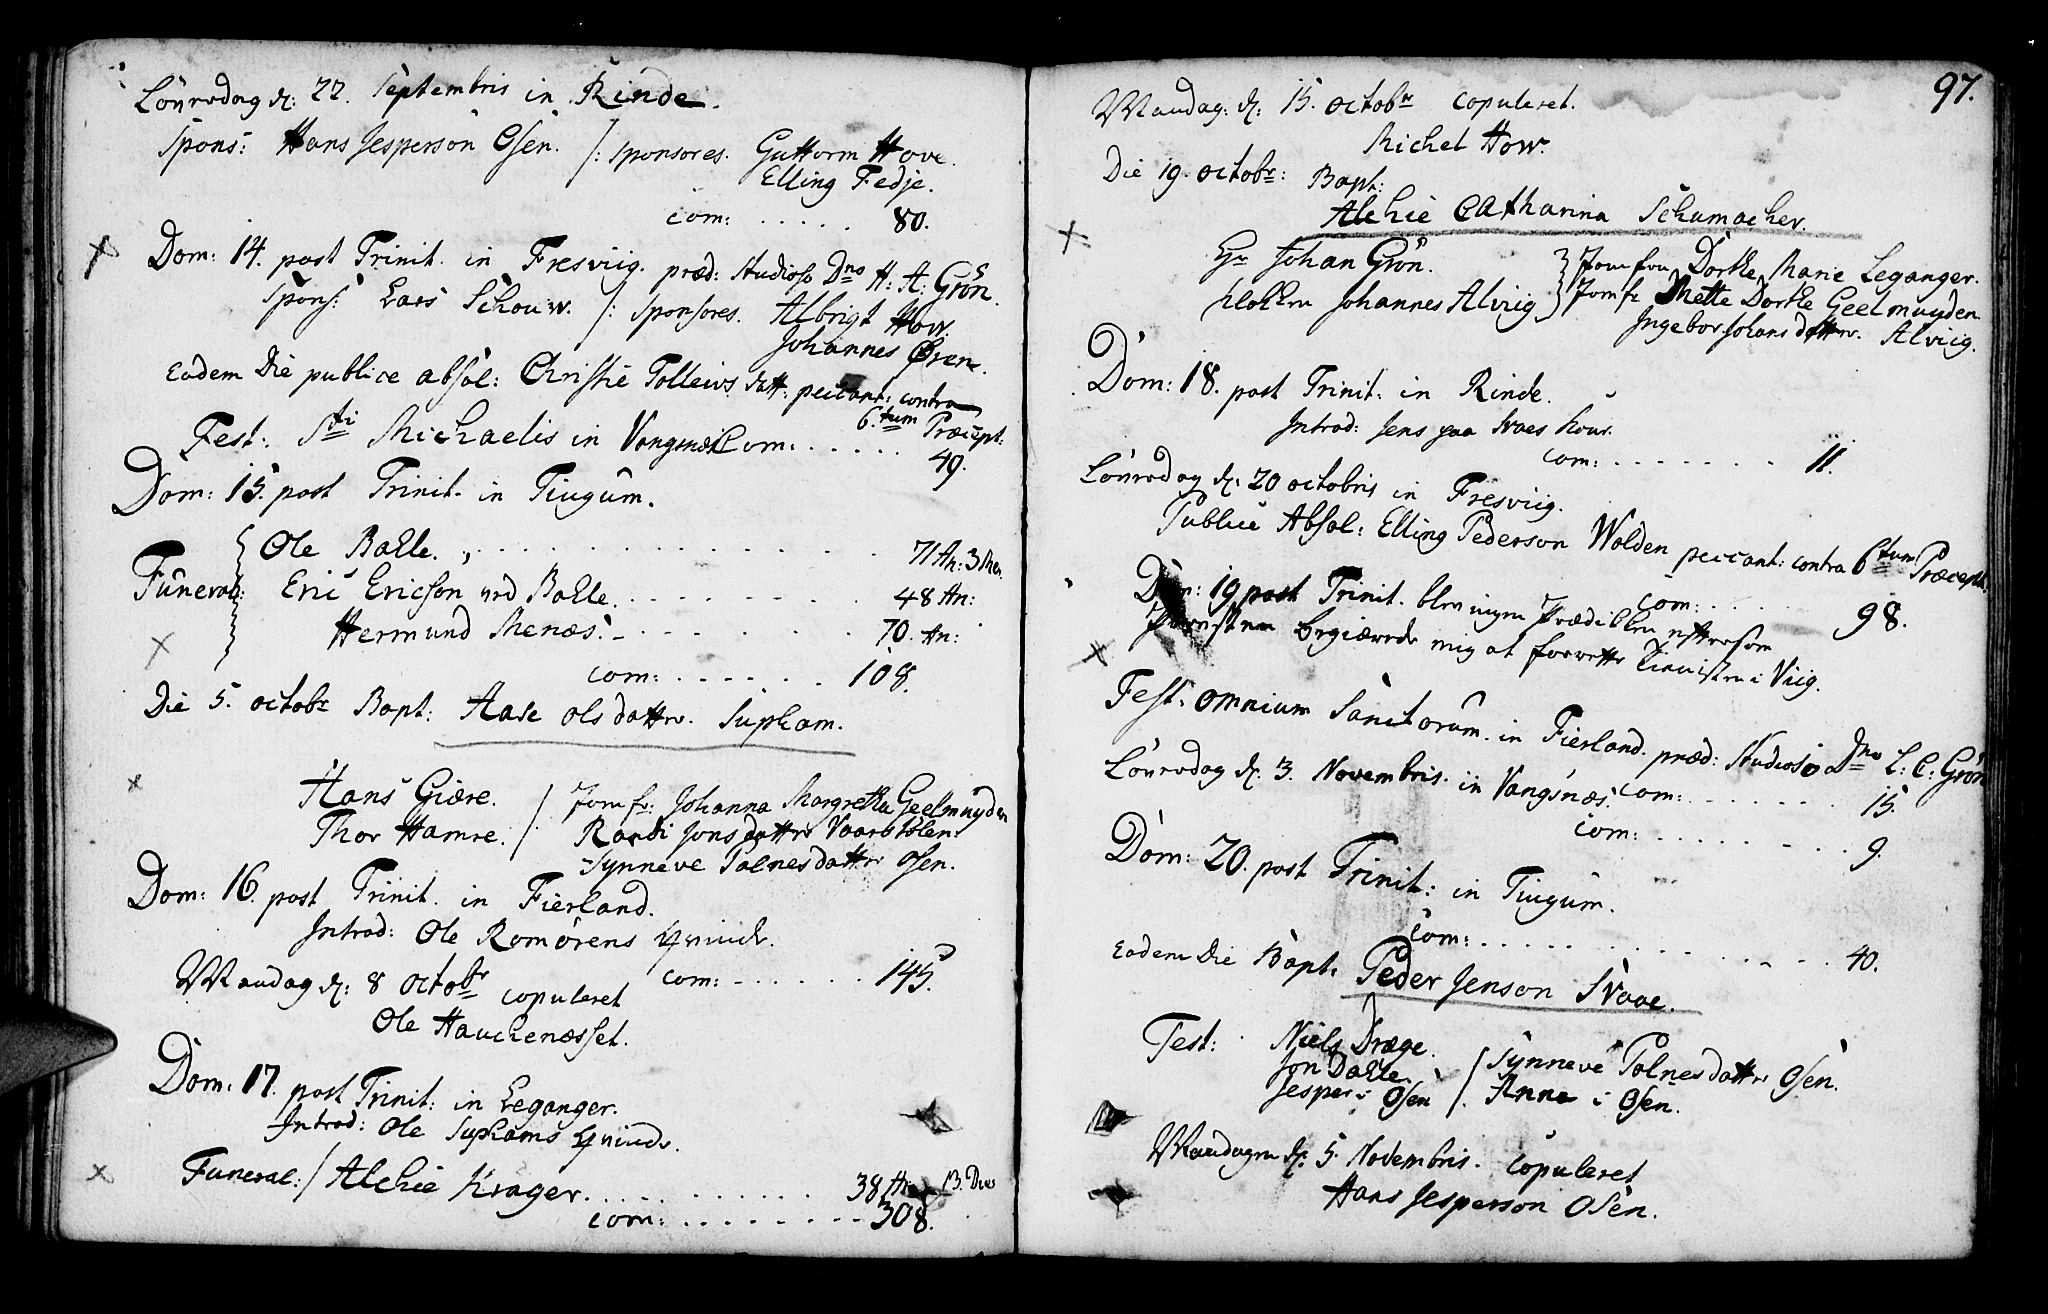 Löuerdag d: 22. Septembris in Rinde.
Spons: Hans Jesperson Osen. /: sponsores. Guttorm Hove.
Elling Fedje.
com: . . . . . 80.
Dom: 14. post Trinit. in Fresviig. præd: Studioso Dno H: A: Grön.
Spons: Lars Schouw. /: sponsores. Albrigt How.
Johannes Øren.
Eodem Die publice absol: Christie Tolleivs datt: peccant: contra
6.tum Præcept:
Fest: Sti Michaelis in Vangsnæs Com: . . . . . 49.
Dom: 15. post Trinit. in Tiugum.
Ole Bahle. . . . . . . . . . . . . 71 An: 3 Men.
Funeral: Eric Ericson ved Bahle. . . . . . . . . 48 An:
Hermund Menæs. . . . . . . . . 70. An:
com: . . . . . . 108.
Die 5. octobr Bapt: Aase olsdatter. Supham.
Hans Giære. / Jomfr: Johanna Margretha Geelmuyden
Thor Hamre. /. Randi Jonsdatter Vaarstølen.
Synneve Polnesdatter Osen.
Dom: 16. post Trinit. in Fierland.
Introd: Ole Romörens qvinde.
com: . . . . . . 145.
Mandag d: 8 octobr copuleret
Ole Hauchenæsset.
Dom: 17. post Trinit: in Leganger.
Introd: Ole Suphams qvinde.
Funeral: / Alchie Krager. . . . . . . . . . 38 An: 13. Dies
com: . . . . . . . . . 308.
97.
Mandag. d: 15. octobr copuleret.
Michel How.
Die 19. octobr: Bapt:
Alchie Catharina Schumacher.
Hr Johan Grön. } Jomfru Dorthe Marie Leganger.
Klokker Johannes Alviig } Jomfr Mette Dorthe Geelmuyden
Ingebor Johansdatter. Alviig.
Dom: 18. post Trinit: in Rinde.
Introd: Jens paa Svaes kone.
com: . . . . . . . 11.
Löuerdag d: 20 octobris in Fresviig.
Publice Absol: Elling Pederson Wolden peccant: contra 6tum Præcept.
com: . . . . . 98.
Dom: 19 post Trinit. blev ingen Prædiken eftersom
Præsten begiærede mig at forrette Tienisten i Viig.
Fest. omnium Sanctorum. in Fierland. præd: Studioso Dno L: C: Grön
com: . . . . . . . 15.
Löuerdag d: 3. Novembris. in Vangsnæs.
com: . . . . . . . . 9.
Dom: 20. post Trinit: in Tiugum.
com: . . . . . . . . . . . . 40.
Eodem Die Bapt: Peder Jenson Svaae.
Test: Niels Dræge.
Jon Dahle. / Synneve Polnesdatter Osen.
Jesper i Osen /. Anna i Osen.
Mandagen d: 5. Novembris. copuleret
Hans Jesperson Osen.